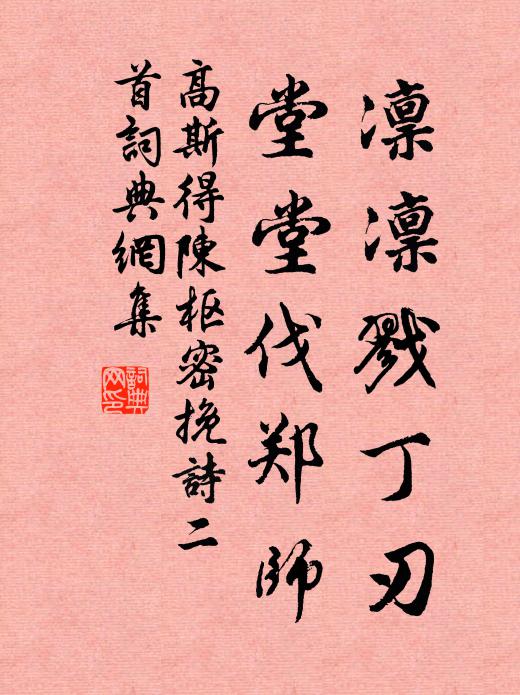 凛凛戮丁刃
堂堂伐郑師
高斯得陳枢密挽詩二
首詞典網集
詞典網印